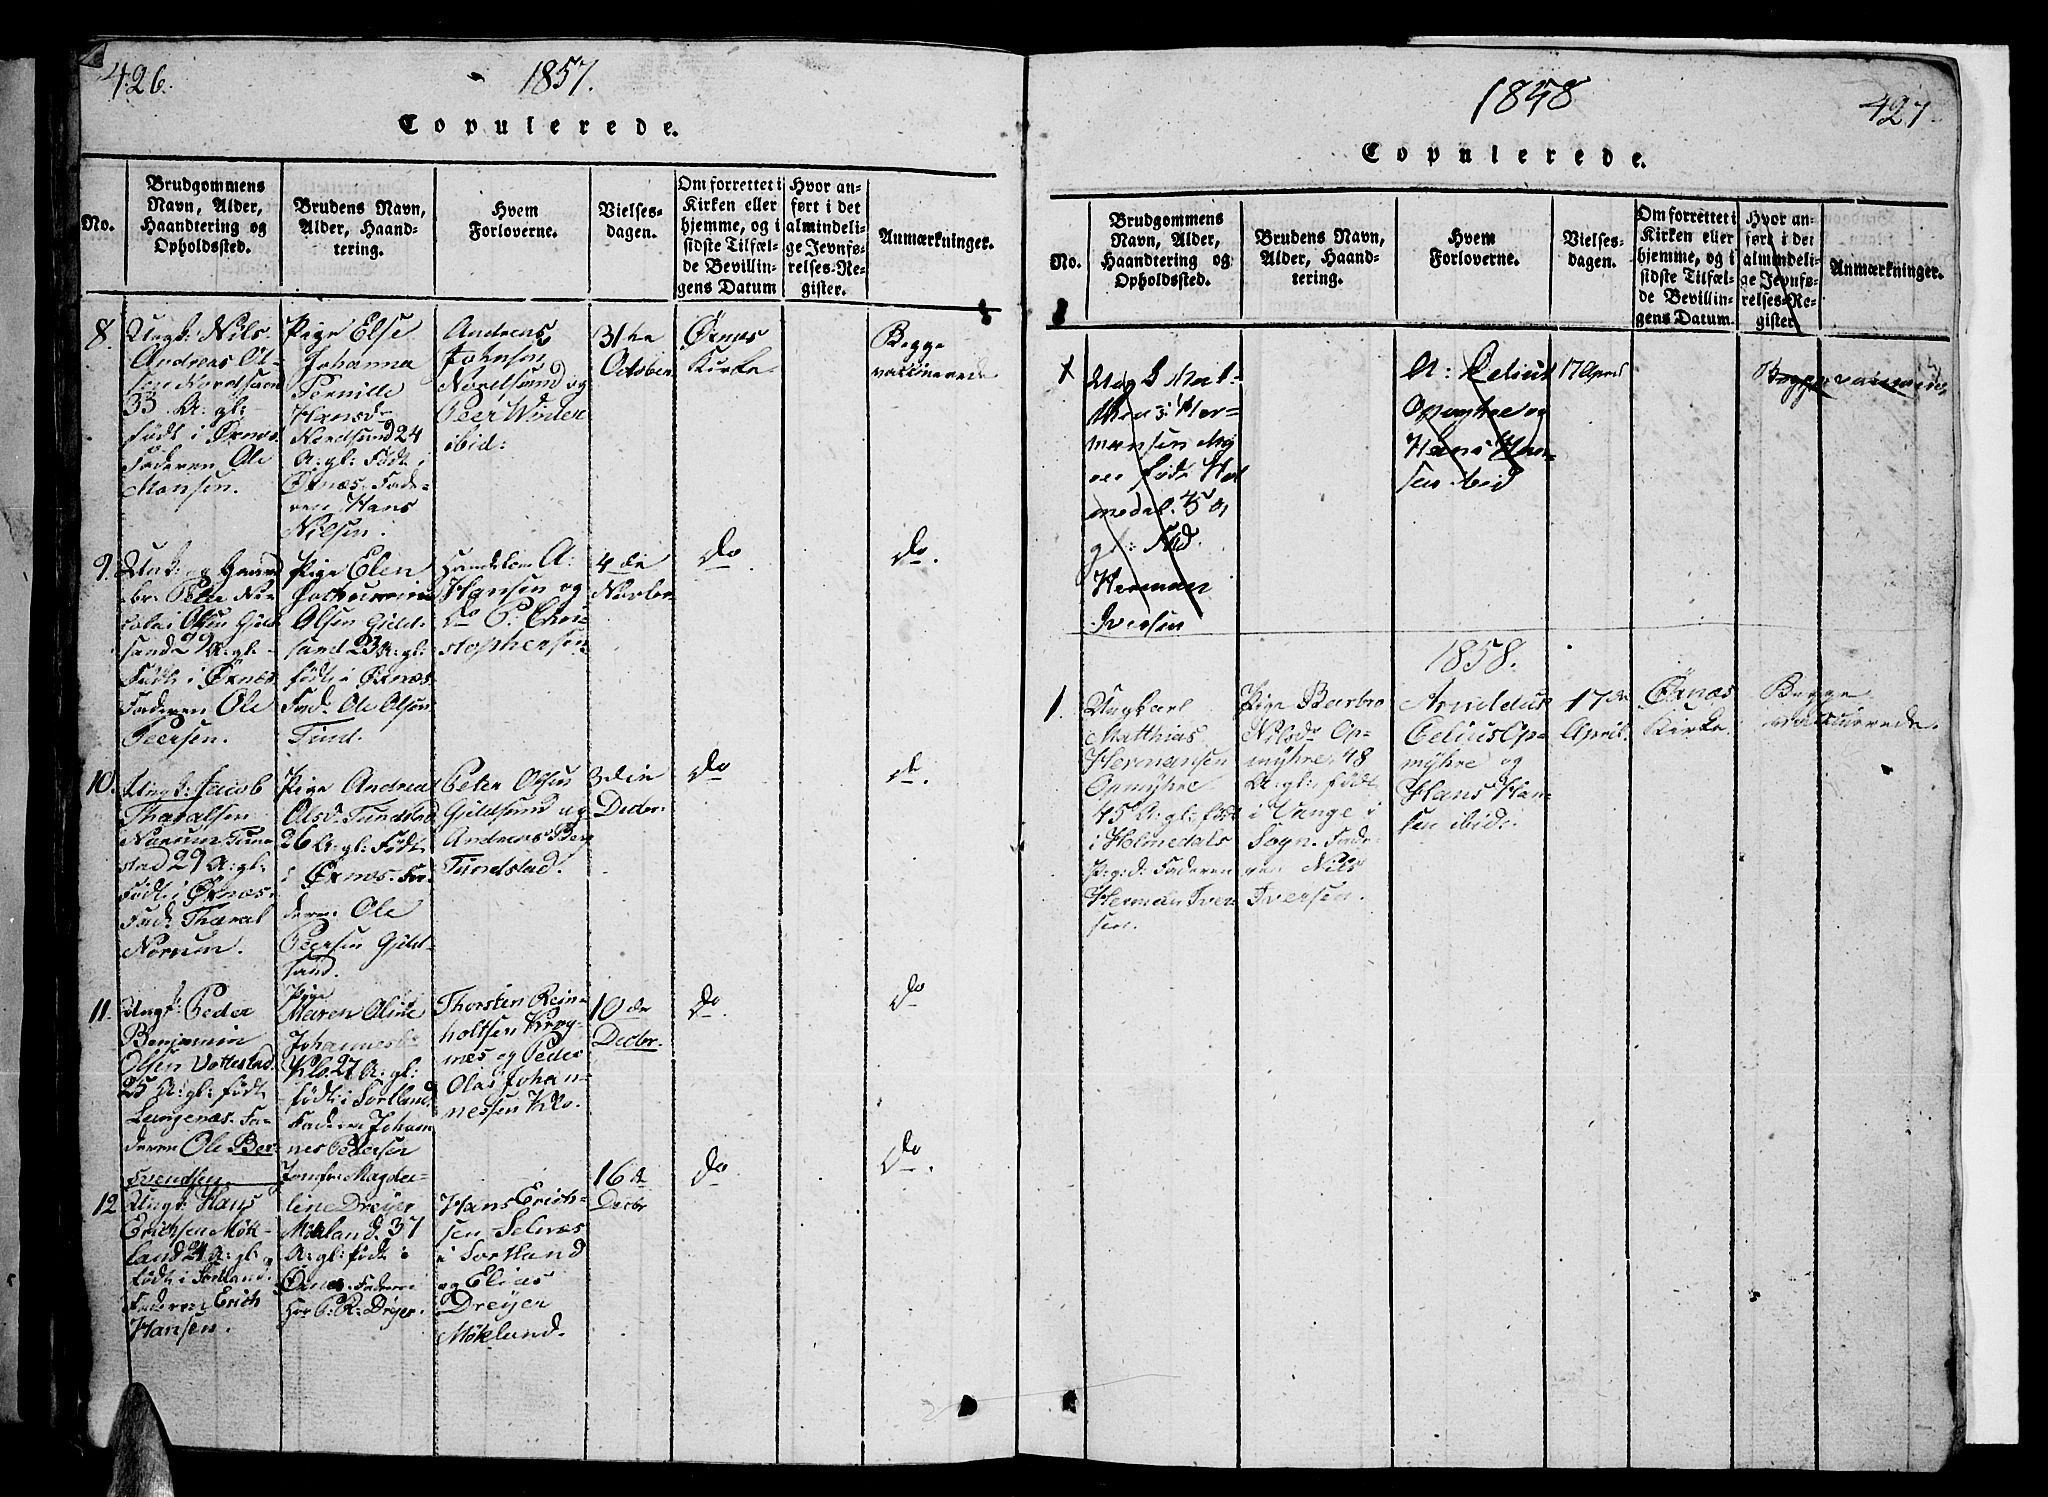 426.
1857.
Copulerede.
No.
Brudgommens
Navn, Alder,
Haandtering og
Opholdssted.
Brudens Navn,
Alder, Haand-
tering.
Hvem
Forloverne.
Vielses-
dagen.
Om forrettet i
Kirken eller
hjemme, og i
sidste Tilfæl-
de Bevillin-
gens Datum
Hvor an-
ført i det
almindeli-
ge Jevnfø-
relses-Re-
gister.
Anmærkninger.
8.
Ungk: Nils
Andreas Ol-
sen Nordsand
33 A: gl:
født i Øxnæs
Faderen Ole
Monsen.
Pige Else
Johanna
Pernille
Hansdr
Nordsund 24
A: gl: Født i
Øxnæs. Fade-
ren Hans
Nilsen.
Andreas
Johnsen
Nordsund og
Peer Winter
ibid:
31te
October
Øxnæs
Kirke
Begge
vaccinerede
9.
Sand 29 A: gl:
Født i Øxnæs
Faderen Ole
Peersen.
Pige Elen
Olsen Gjeld-
sand 23 A: gl:
født i Øxnæs
Fad: Ole Olsen
Tund.
Handelsm A:
Hansen og
do P. Chri-
stophersen
4de
Novbr.
do
do.
10.
Ungk: Jacob
Tharalsen
Norum Tun-
stad 29 A: gl:
Født i Øxnæs.
Fad: Tharal
Norum.
Pige Andrea
Olsd. Tundstad
26 A: gl: Født
i Øxnæs. Fa-
deren Ole
Peersen Gjeld-
sand.
Peter Olsen
Gjeldsund og
Andreas Berg
Tundstad.
3die
Decbr.
do
do.
11.
Ungk: Peder
Benjamin
Olsen Vottestad
25 A: gl: født
Langenæs. Fa-
deren Ole Ber-
Svendsen.
Pige
Maren Oline
Johannesdr
Klo. 27 A: gl:
født i Sortland
Faderen Johan-
nes Pedersen
Thorsten Rein-
holtsen Krog-
næs og Peder
Olai Johan-
nessen Klo.
10de
Decbr.
do
do
12
Ungk: Hans
Erichsen Møk-
land 24 A: gl:
født i Sortland.
Faderen Erich
Hansen.
Jomfr. Magda-
line Dreyer
Mækland 37
A: gl: født i
Øxnes. Faderen
Hr P. R. Dreyer.
Hans Erich-
sen Selnæs
i Sortland
og Elias
Dreyer
Møkland.
16de
Decbr
do
do.
1858
427
Copulerede.
No.
Brudgommens
Navn, Alder,
Haandtering og
Opholdssted.
Brudens Navn,
Alder, Haand-
tering.
Hvem
Forloverne.
Vielses-
dagen.
Om forrettet i
Kirken eller
hjemme, og i
sidste Tilfæl-
de Bevillin-
gens Datum.
Hvor an-
ført i det
almindeli-
ge Jevnfø-
relses-Re-
gister.
Anmærkninger.
1
Ungk Mat-
thias Her-
mansen
født Hol
medal. 45 A
gl: Fad.
Herman
Iversen
A: Celius
Opmyhre og
Hans Han-
sen ibid
17 April
Begge
1858.
1.
Ungkarl
Matthias
Hermansen
Opmyhre
45 A: gl: født
i Holmedals
P: g: d: Faderen
Herman Iver-
sen.
Pige Barbro
Nilsdr Op-
myhre 48
A: gl: født
i Vange i
Sogn. Fade-
ren Nils
Iversen.
Arnoldus
Celius Op-
myhre og
Hans Han-
sen ibid:
17de
April.
Øxnæs
Kirke
Begge
vaccinerede.